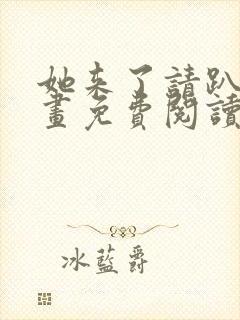 她来了請趴
畫免費閱讀
冰藍爵